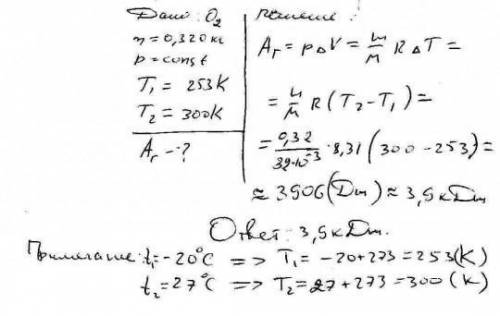 Дано: O₂
m=0,320 кг
p=const
T₁ = 253K
T₂ = 300K
Aг -?
Решение:
Aг = pΔV = m/M RΔT =
= m/M R(T₂-T₁) =
= 0,32/32·10⁻³ · 8,31 (300-253) =
≈ 3906 (Дж) ≈ 3,9 кДж
Ответ: 3,9 кДж.
Примечание: t₁=-20°C => T₁ = -20+273=253(K)
t₂=27°C => T₂=27+273=300(K)